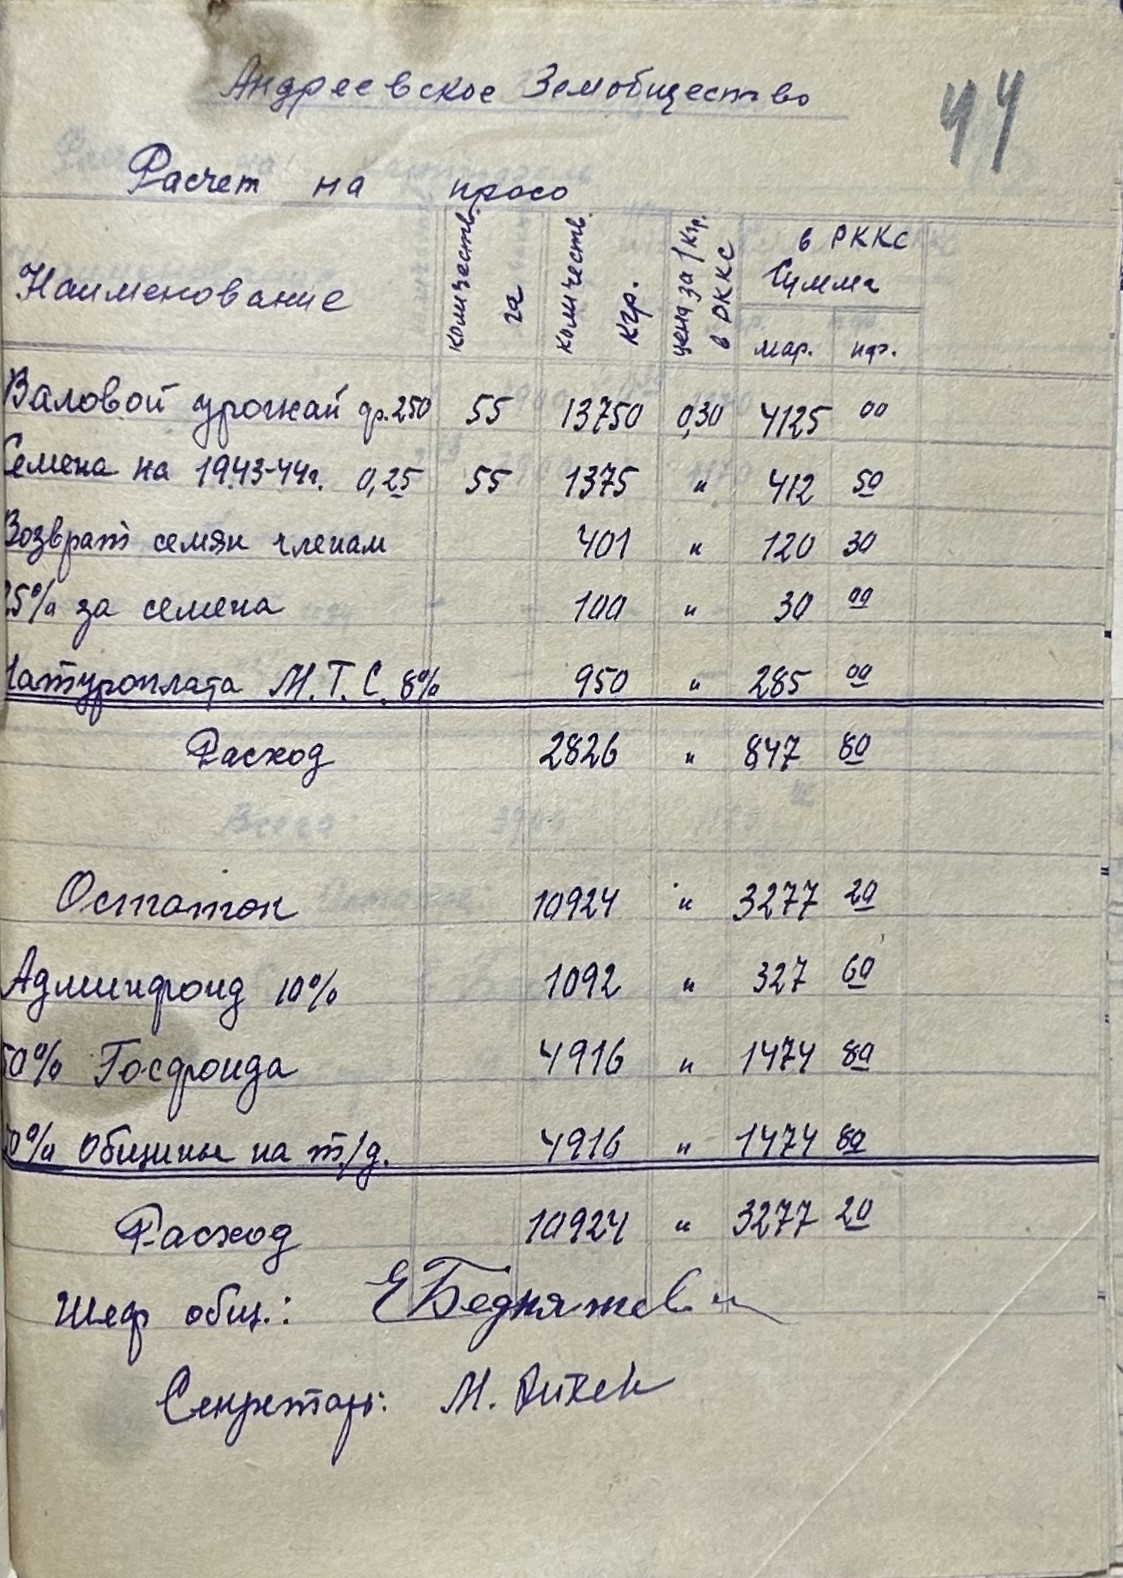 Андреевское Земобщество
44
Расчет на просо
Наименование количеств. га количеств. кгр. цена за 1 кгр. в РККС в РККС Сумма мар. пф.
Валовой урожай ф.250 55 13750 0,30 4125 00
Семена на 1943-44г. 0,25 55 1375 " 412 50
Возврат семян членам 401 " 120 30
25% за семена 100 " 30 00
Натуроплата М.Т.С. 8% 950 " 285 00
Расход 2826 " 847 80
Остаток 10924 " 3277 20
Админфонд 10% 1092 " 327 60
50% Госфонда 4916 " 1474 80
50% Общины на т/д. 4916 " 1474 80
Расход 10924 " 3277 20
Шеф общ.:
Секретарь: М.